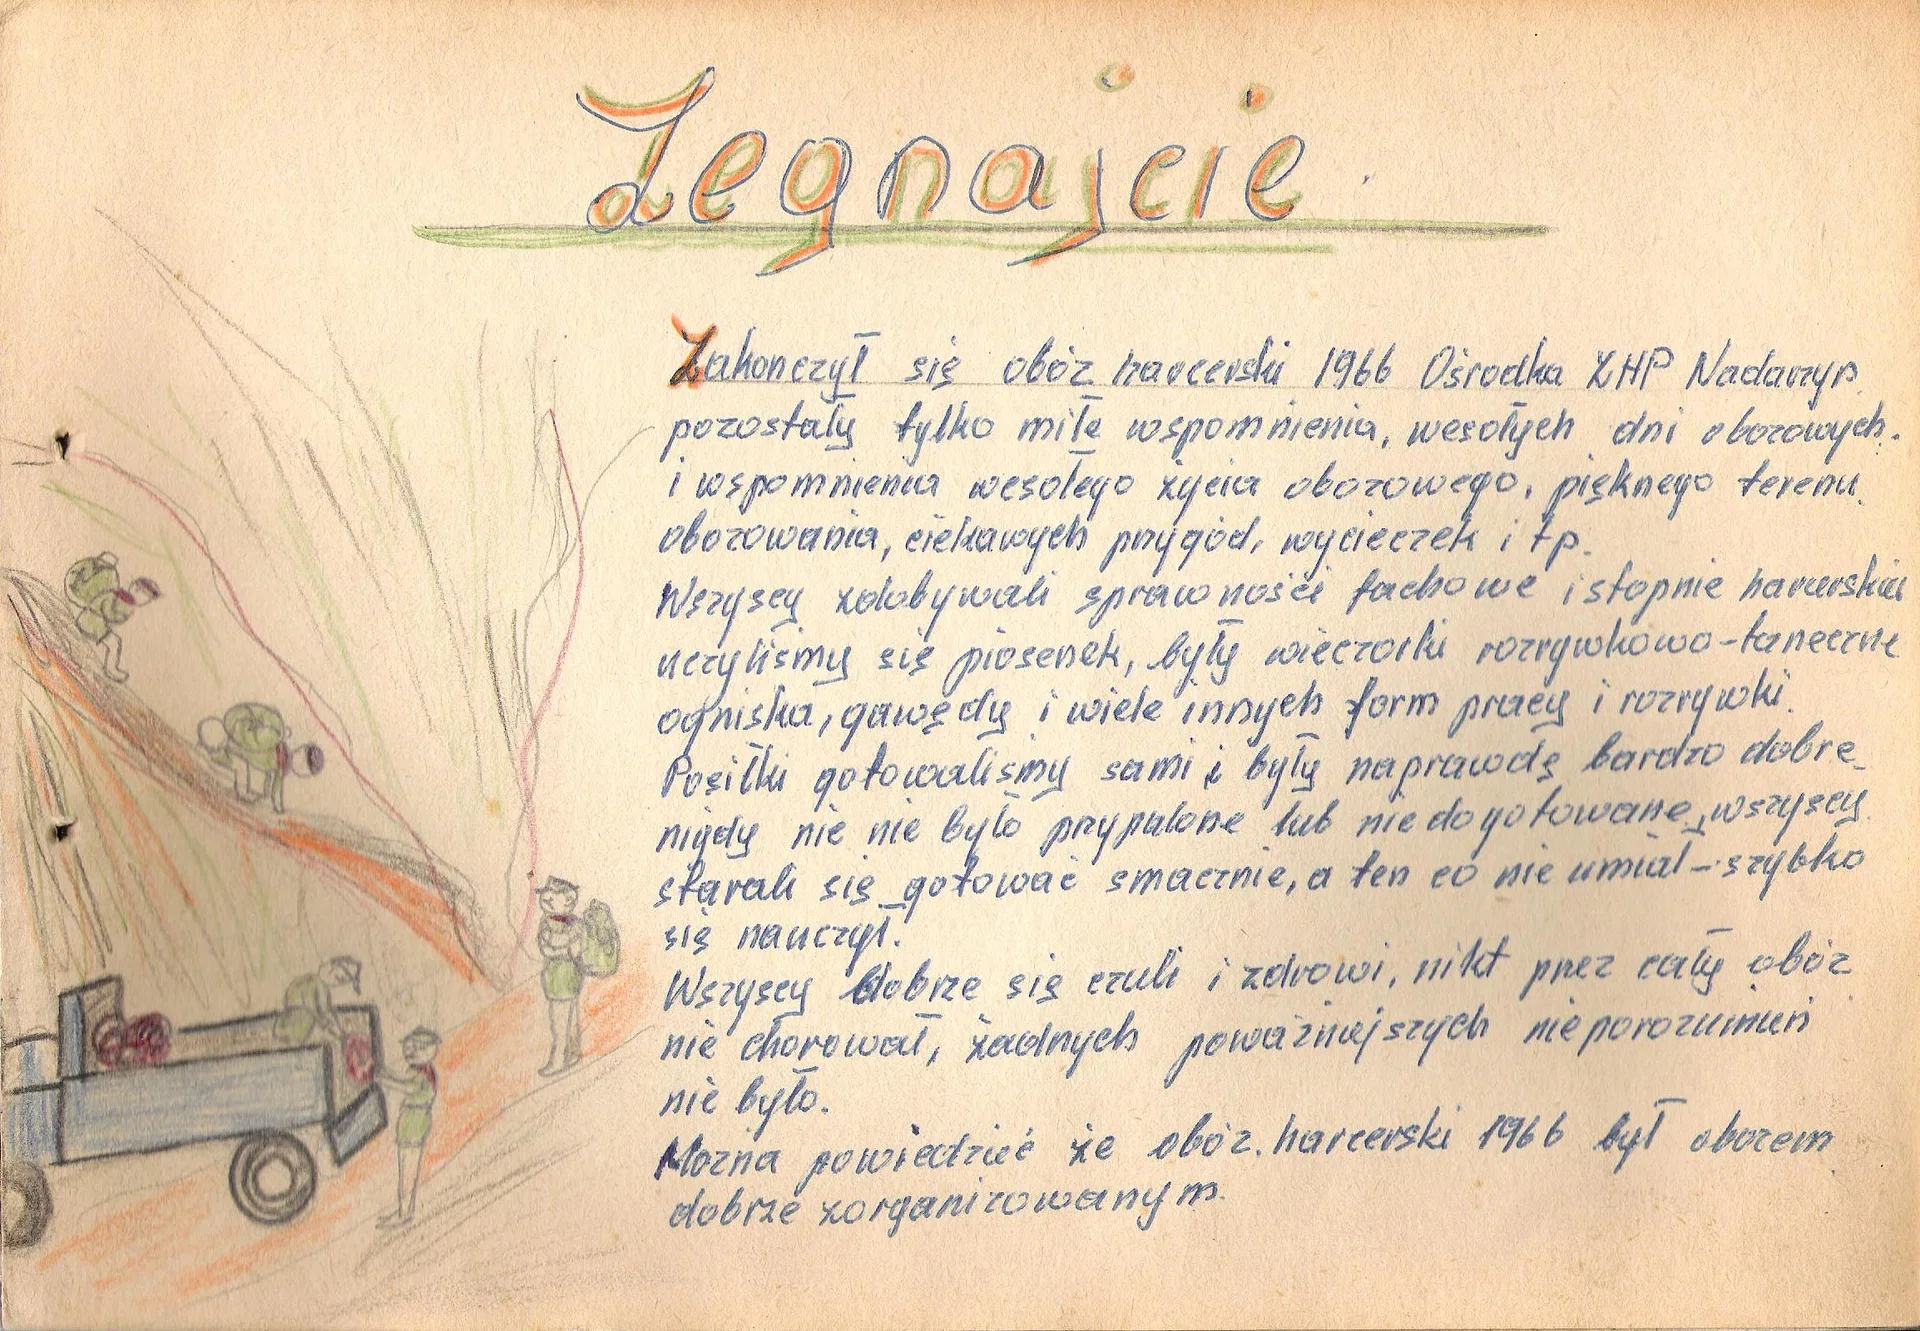 Żegnajcie
Zakończył się obóz harcerski 1966 Ośrodka ZHP Nadarzyn
pozostały tylko miłe wspomnienia, wesołych dni obozowych.
i wspomnienia wesołego życia obozowego, pięknego terenu
obozowania, ciekawych przygód, wycieczek i tp.
Wszyscy zdobywali sprawności fachowe i stopnie harcerskie
uczyliśmy się piosenek, były wieczorki rozrywkowo-taneczne
ogniska, gawędy i wiele innych form pracy i rozrywki.
Posiłki gotowaliśmy sami i były naprawdę bardzo dobre
nigdy nie nie było przypalone lub niedogotowane, wszyscy
starali się gotować smacznie, a ten co nie umiał - szybko
się nauczył.
Wszyscy dobrze się czuli i zdrowi, nikt przez cały obóz
nie chorował, żadnych poważniejszych nieporozumień
nie było.
Można powiedzieć że obóz. harcerski 1966 był obozem
dobrze zorganizowanym.